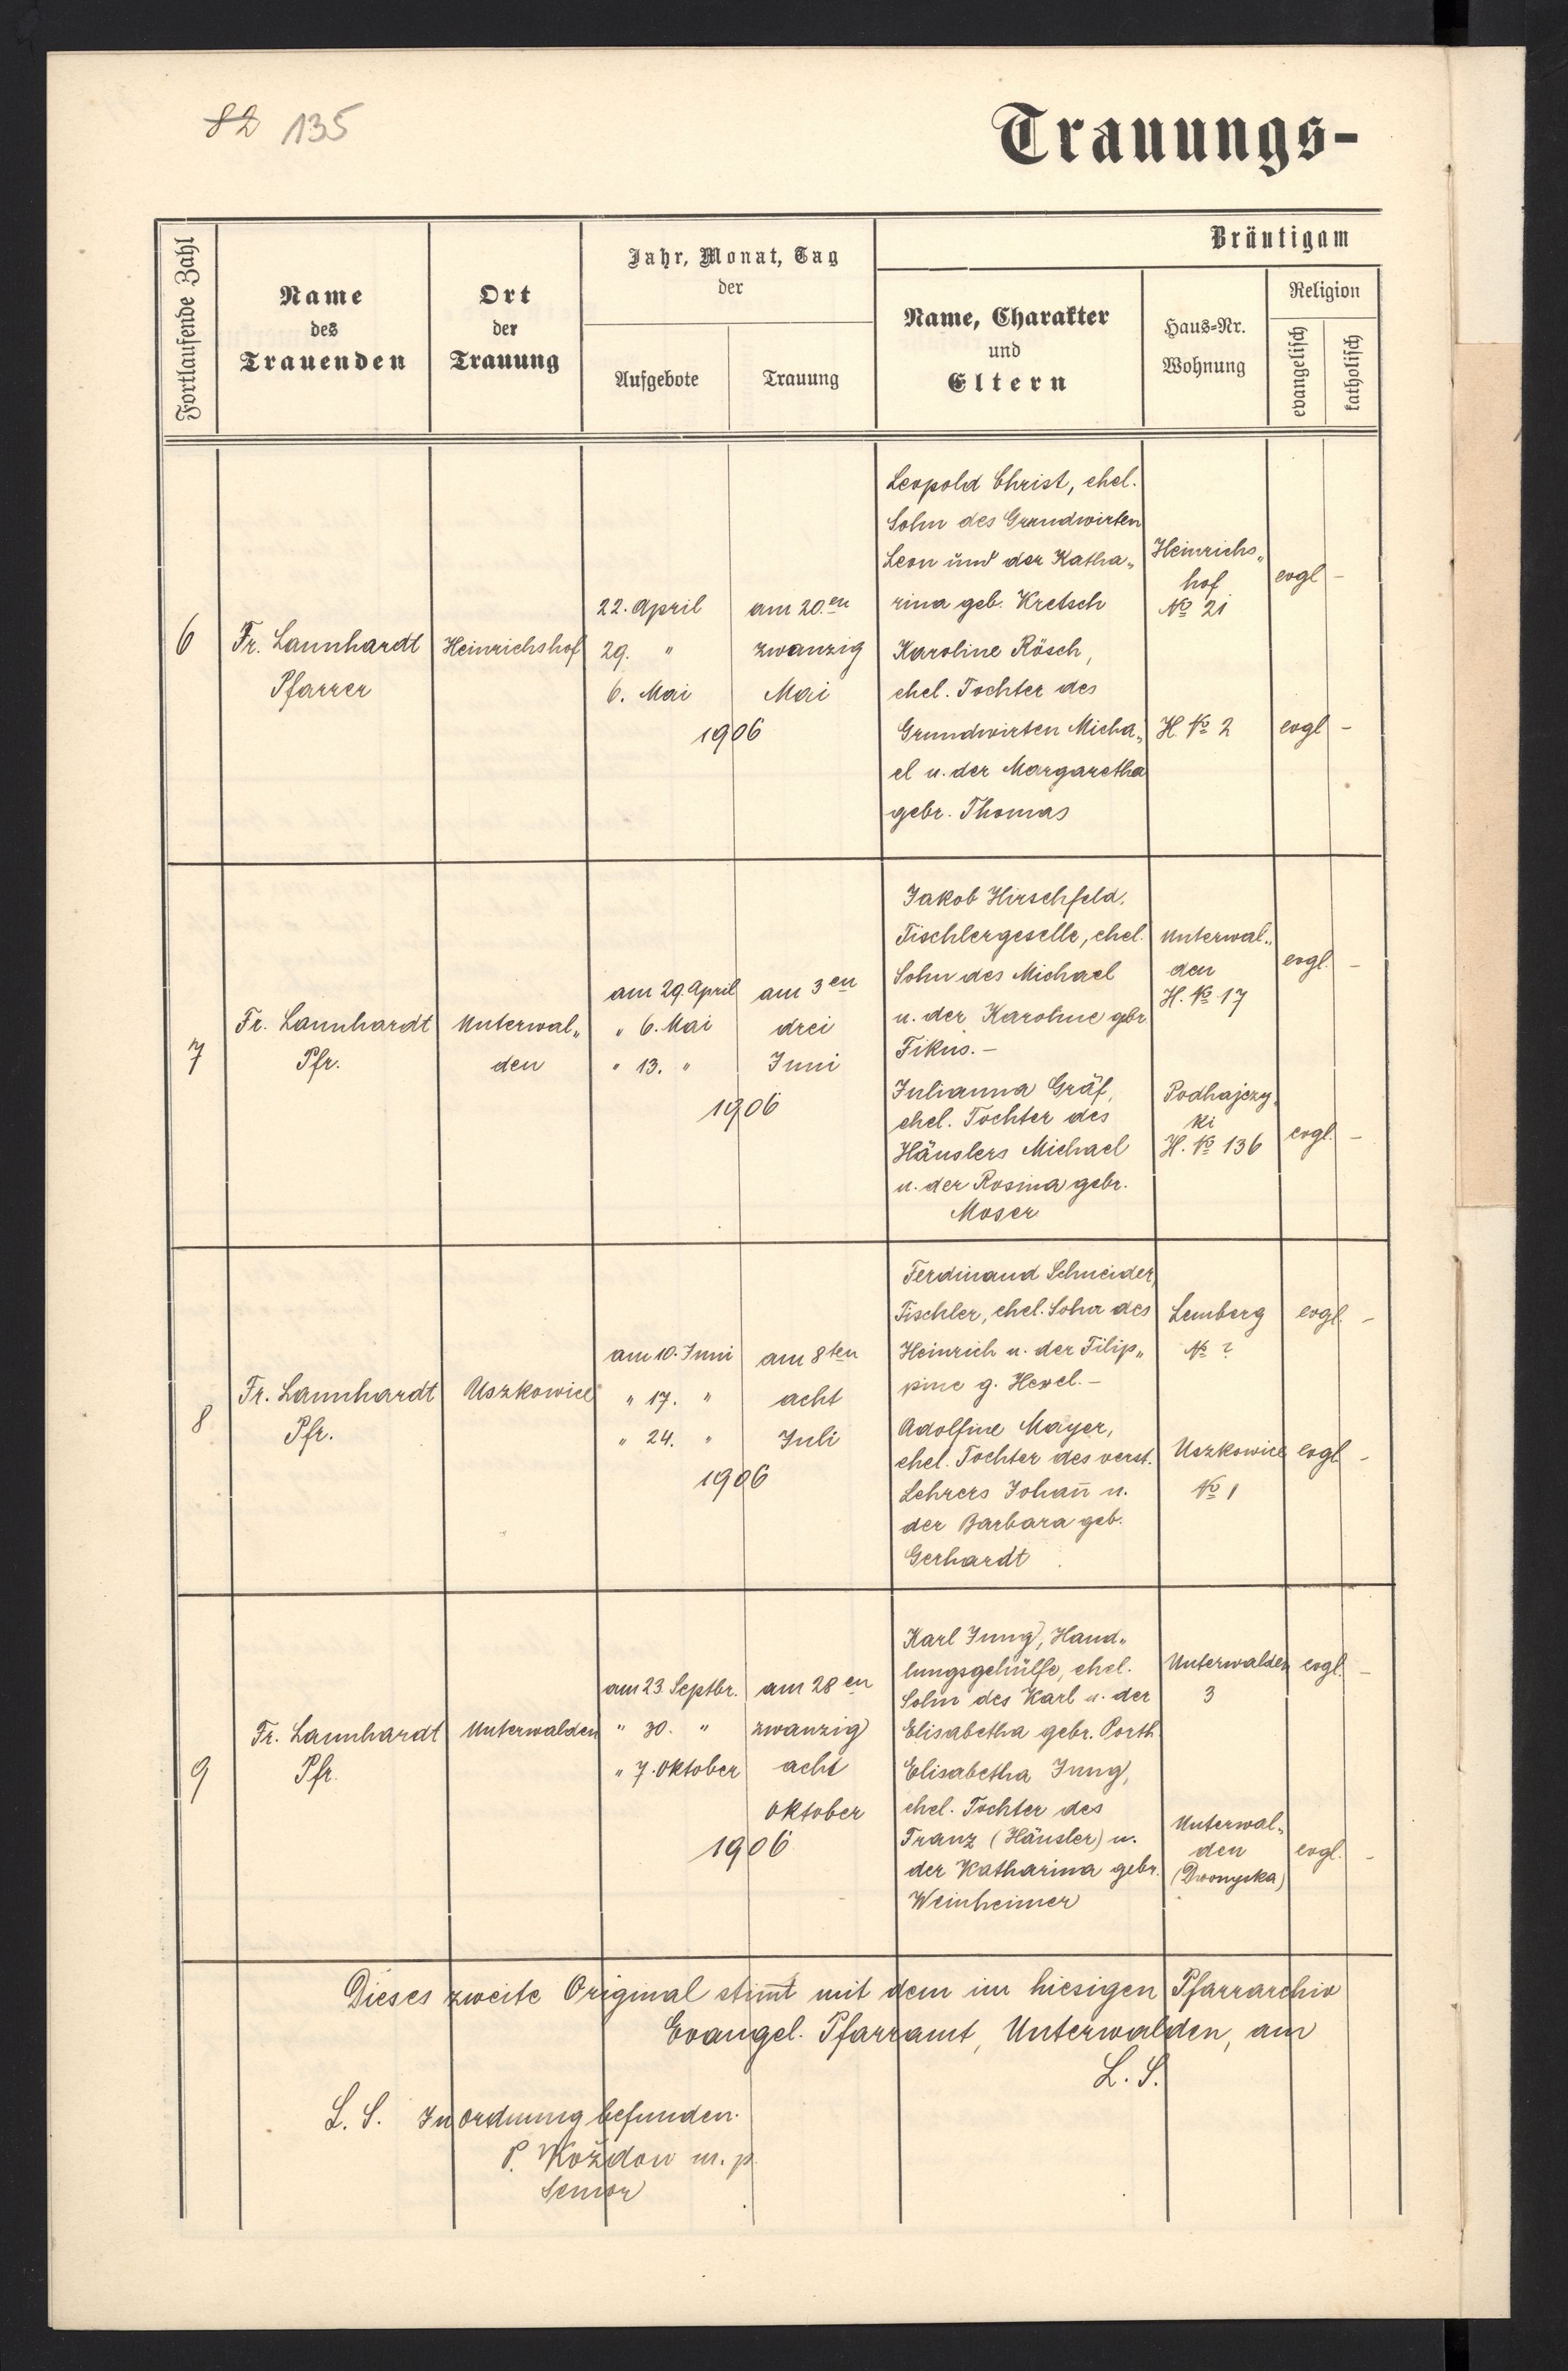 82 135
Trauungs-
Fortlaufende Zahl
Name
des
Trauenden
Ort
der
Trauung
Jahr, Monat, Tag
der
Aufgebote
Trauung
Bräutigam
Name, Charakter
und
Eltern
Haus-Nr.
Wohnung
Religion
evangelisch
katholisch
6
Fr. Launhardt
Pfarrer
Heinrichshof
22. April
29. "
6. Mai
am 20.en
zwanzig
Mai
1906
Leopold Christ, ehel.
Sohn des Grundwirten
Leon und der Katha„
rina geb. Kretsch
Karoline Rösch,
ehel. Tochter des
Grundwirten Micha„
el u. der Margaretha
gebr. Thomas
Heinrichs„
hof
No 21
H. No 2
evgl -
evgl -
7
Fr. Launhardt
Pfr.
Unterwal„
den
am 29. April
" 6. Mai
" 13. "
am 3en
drei
Juni
1906
Jakob Hirschfeld,
Tischlergeselle, ehel.
Sohn des Michael
u. der Karoline gebr
Fikus. -
Julianna Gräf,
ehel. Tochter des
Häuslers Michael
u. der Rosina gebr.
Moser
Unterwal„
den
H. No 17
Podhajczy„
ki
H. No 136
evgl. -
evgl. -
8
Fr. Launhardt
Pfr.
Uszkowice
am 10. Juni
" 17. "
" 24. "
am 8ten
acht
Juli
1906
Ferdinand Schneider,
Tischler, ehel. Sohn des
Heinrich u. der Filip„
pine g. Hexel. -
Adolfine Mayer,
ehel. Tochter des verst.
Lehrers Johan̄ u.
der Barbara geb.
Gerhardt
Lemberg
No ?
Uszkowice
No 1
evgl. -
evgl -
9
Fr. Launhardt
Pfr.
Unterwalden
am 23. Septbr.
" 30. "
" 7. Oktober
am 28en
zwanzig
acht
Oktober
1906
Karl Jung, Hand„
lungsgehülfe, ehel.
Sohn des Karl u. der
Elisabetha gebr. Porth
Elisabetha Jung,
ehel. Tochter des
Franz (Häusler) u.
der Katharina gebr.
Weinheimer
Unterwalden
3
Unterwal„
den
evgl. -
evgl. -
Dieses zweite Original stim̄t mit dem im hiesigen Pfarrarchiv
Evangel. Pfarramt, Unterwalden, am
L. S.
L. S. In Ordnung befunden.
P. Kożdoń m. p.
Senior